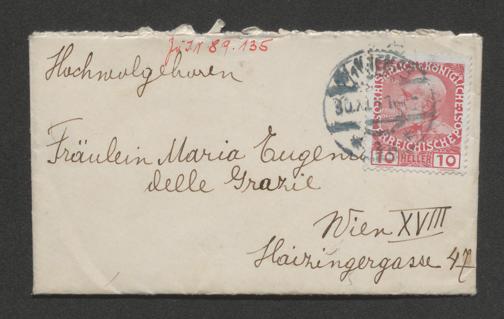 JoIN 89.135
Hochwolgeboren
Fräulein Maria Eugenie
delle Grazie
Wien XVIII
Haizingergasse 47
WIEN
30.XI
KAISERLICHE KÖNIGLICHE POST
ÖSTERREICHISCHE
10 HELLER 10